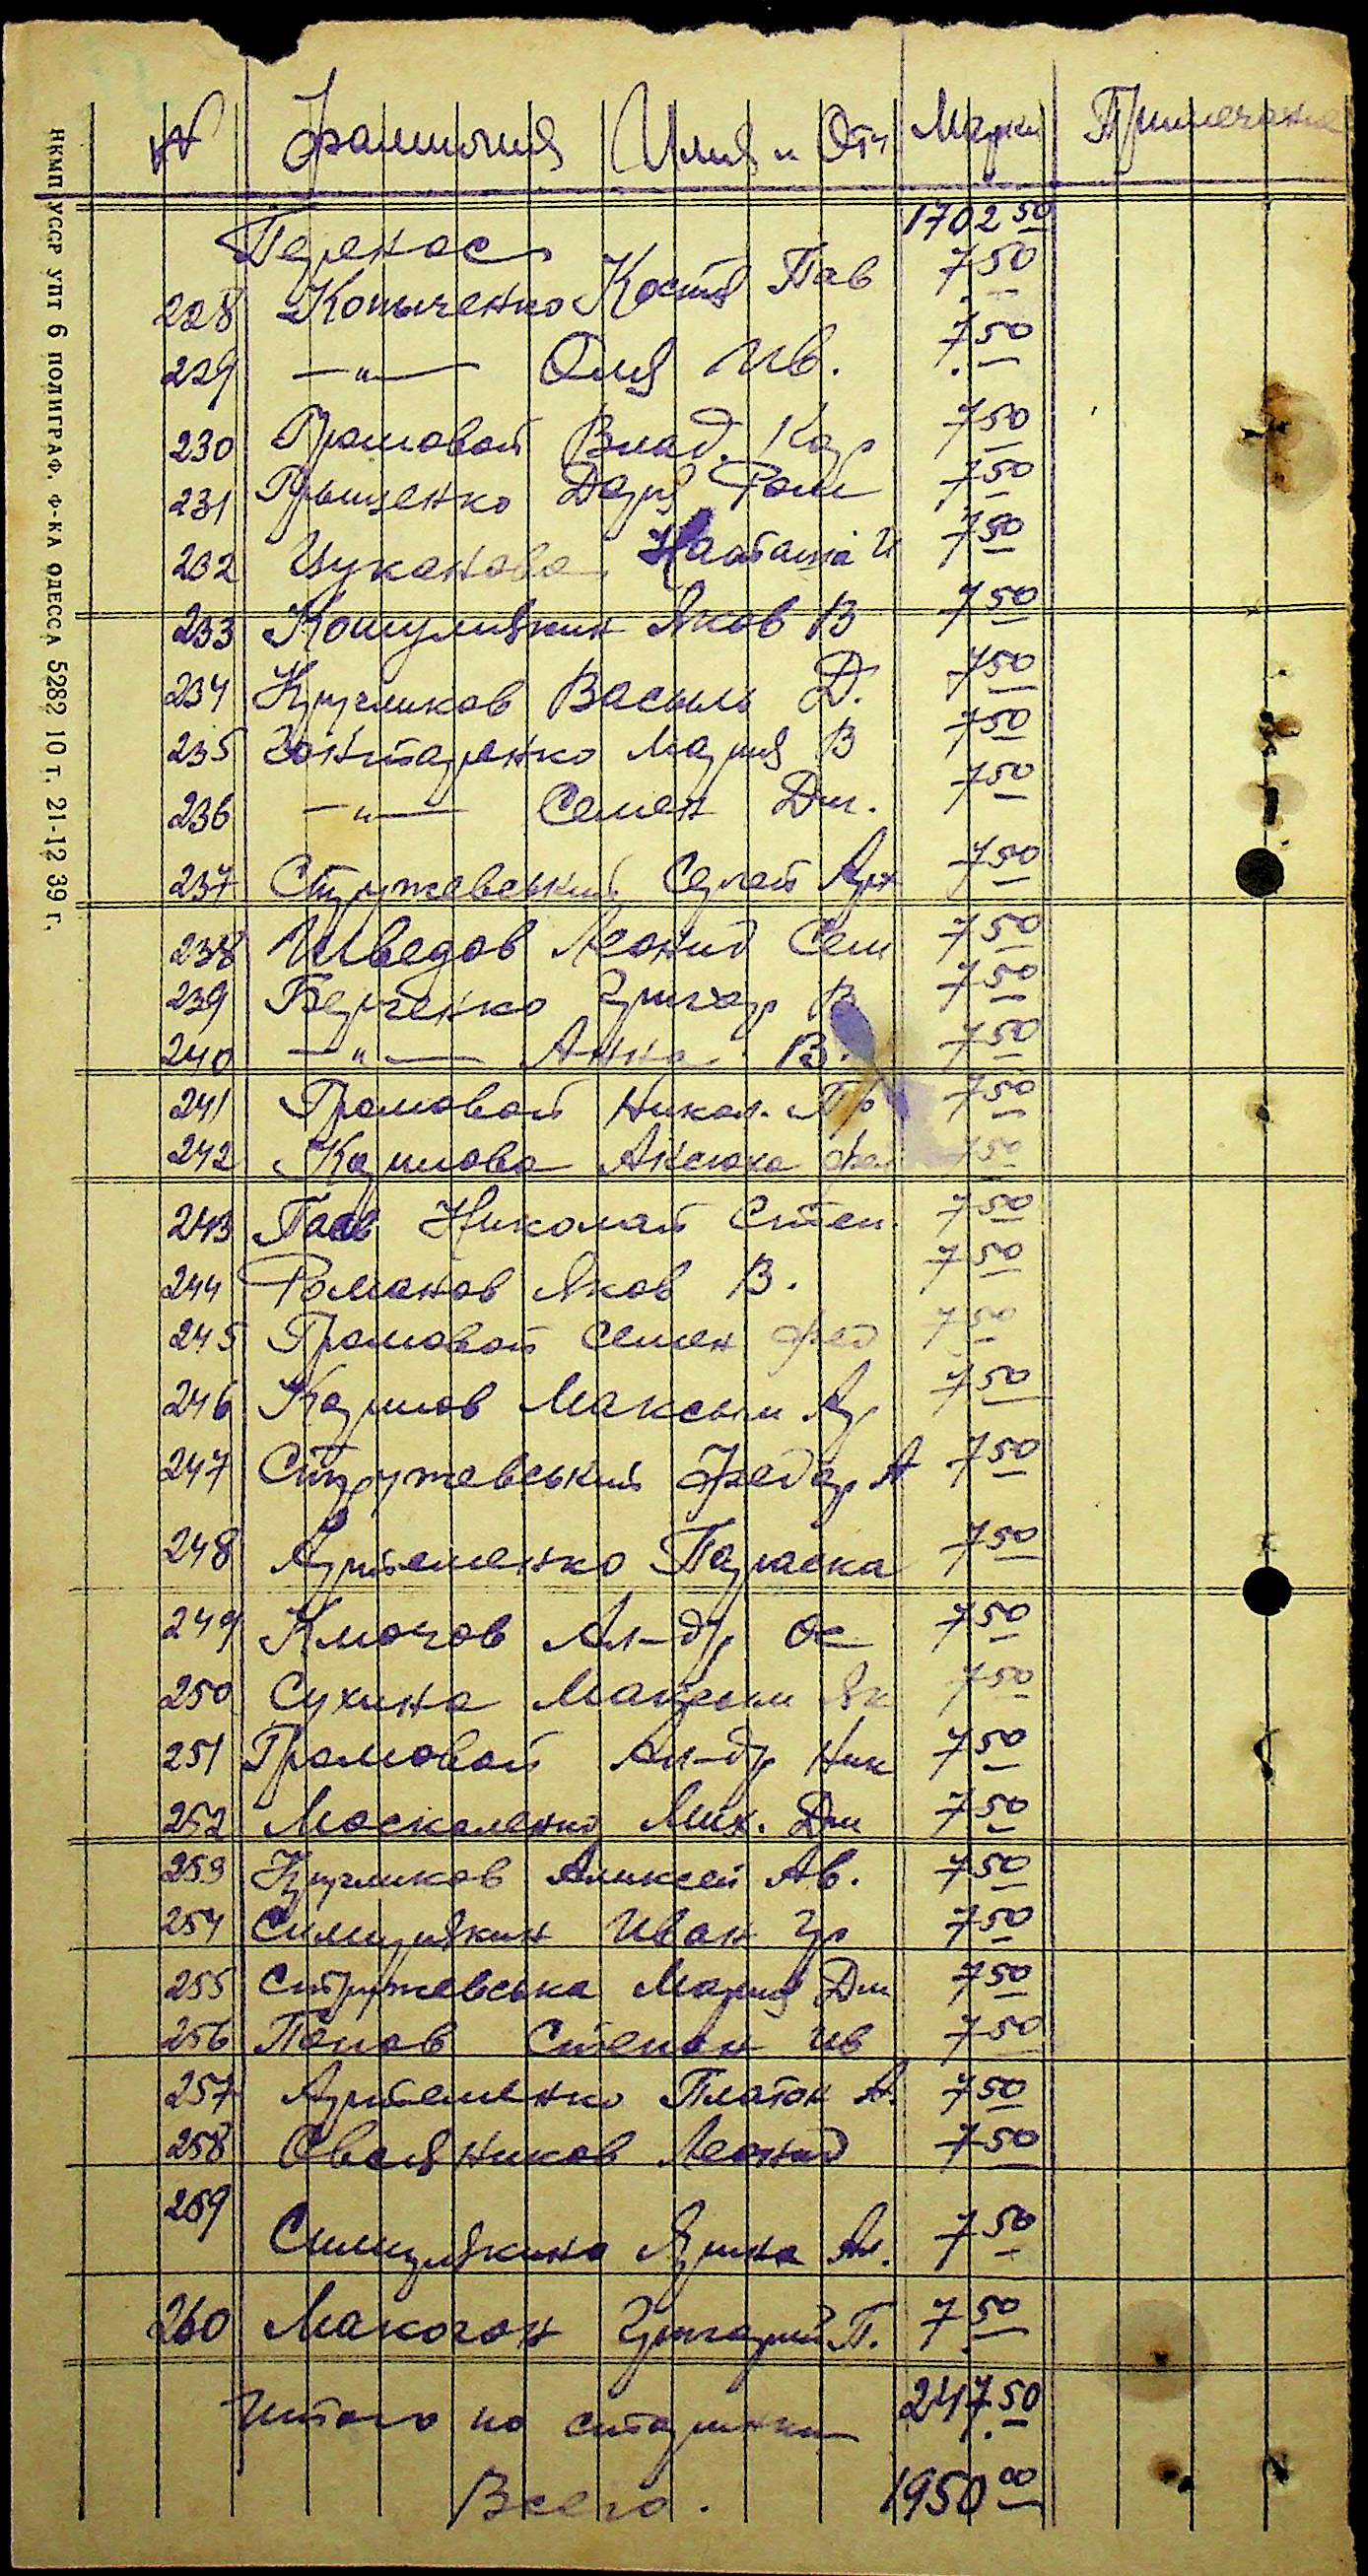 № Фамилия Имя и Отч Марки Примечание
Перенос 1702 50
228 Копыченко Костя Пав 7 50
229 —"— Оля Ив. 7 50
230 Громовой Влад. Кар 7 50
231 Грыценко Дарья Ром 7 50
232 Цуканова Наташа И 7 50
233 Яков В 7 50
234 Кругликов Василь Д. 7 50
235 Гонтаренко Мария В 7 50
236 —"— Семен Дм. 7 50
237 Стружевський Сергей Арх 7 50
238 Шведов Леонид Сем 7 50
239 Берченко Григор В 7 50
240 —"— Анна В. 7 50
241 Громовой Никол. Пр 7 50
242 Карпова Аксюха Фед 7 50
243 Николай Степ. 7 50
244 Романов Яков В. 7 50
245 Громовой Семен Фед 7 50
246 Карпов Максым Ар 7 50
247 Стружевський Федор А 7 50
248 Артеменко Параска 7 50
249 Клочов Ал-др Ос 7 50
250 Сухина Як 7 50
251 Громовой Ал-др Ник 7 50
252 Москаленко Мих. Дм 7 50
253 Кругликов Алексей Ав. 7 50
254 Иван Гр 7 50
255 Стружевська Мария Дм 7 50
256 Попов Степан Ив 7 50
257 Артеменко Платон А. 7 50
258 Леонид 7 50
259 Ярина Ал. 7 50
260 Макогон Григорий П. 7 50
Итого по старинки 247.50
Всего. 1950 00
НКМП УССР УПТ 6 ПОЛИГРАФ. Ф-КА ОДЕССА 5282 10 т. 21-12 39 г.